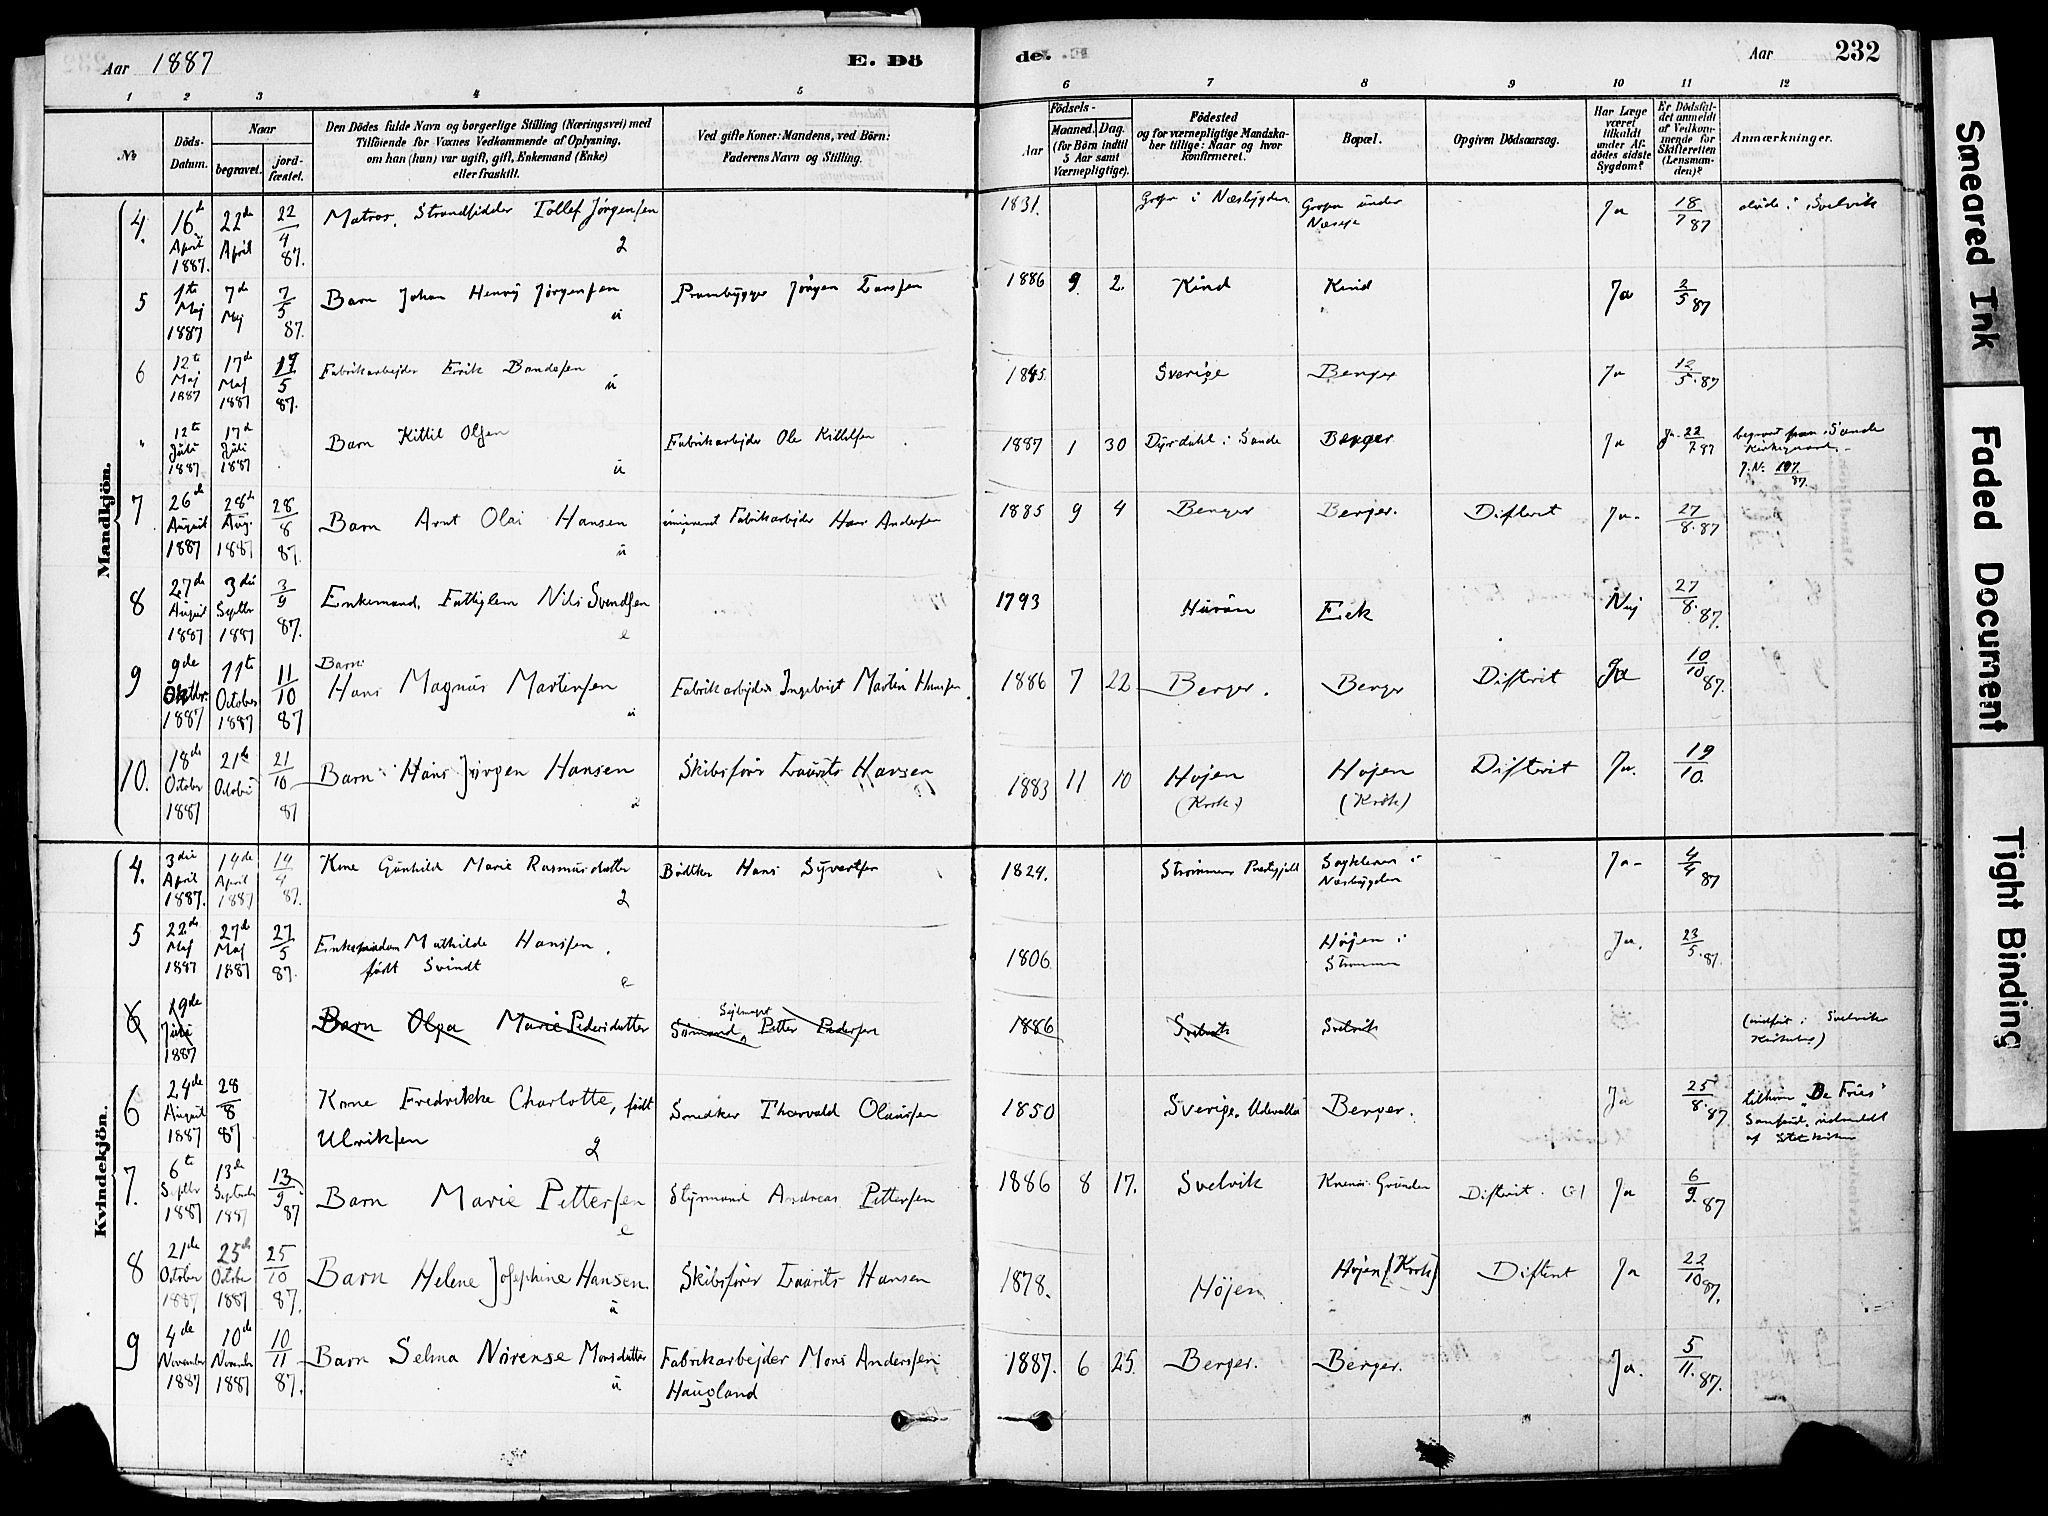 Aar 1887 E. Dö
de. Aar 232
1 2 3 4 5 6 7 8 9 10 11 12
No
Döds-Datum.
Naar
begravet.
jord-fæstet.
Den Dödes fulde Navn og borgerlige Stilling (Næringsvei) med
Tilföiende for Voxnes Vedkommende af Oplysning,
om han (hun) var ugift, gift, Enkemand (Enke)
eller fraskilt.
Ved gifte Koner: Mandens, ved Börn:
Faderens Navn og Stilling.
Födsels-
Aar
Maaned. Dag.
(for Börn indtil
5 Aar samt
Værnepligtige).
Födested
og for værnepligtige Mandska-
ber tillige: Naar og hvor
konfirmeret.
Bopæl.
Opgiven Dödsaarsag.
Har Læge
været
tilkaldt
under Af-
dödes sidste
Sygdom?
Er Dödsfal-
det anmeldt
af Vedkom-
mende for
Skifteretten
(Lensman-
den)?
Anmærkninger.
Mandkjön.
4. 16de April 1887. 22de April 22/4 87. Matros, Strandsidder Tollef Jörgensen 2 1831. i Næsbygden under Ja 18/7 87 döde i Svelvik
5 1te Maj 1887 7de Maj 7/5 87. Barn Johan Henrÿ Jörgensen ü Prambygger Jörgen Larssen 1886 9 2. Kind Kind Ja 2/5 87
6 12te Maj 1887 17de Maj 1887 5 87. Fabrikarbejder Erik ü Sverige Berger Ja 12/5 87
" 12te Juli 1887 17d Juli 1887 Barn Kittil Olsen ü Fabrikarbejder Ole Kittilsen 1887 1 30 Dyrdahl i Sande Berger Ja Ja 22/7 87 begravet paa Sande Kirkegaard
7 26de August 1887 28de Aug. 1887 28/8 87. Barn Arnt Olai Hansen ü Fabrikarbejder Hans Andersen 1885 9 4 Berger Berger. Difterit Ja 27/8 87
8 27de August 1887 3die Septbr 1887 3/9 87. Enkemand, Fattiglem Nils Svendsen e 1793 Hurön Eek Nej 27/8 87.
9 9de Oktbr. 1887 11te October 1887 11/10 87 Barn Hans Magnus Martinsen ü Fabrikarbejder Ingebrigt Martin Hansen 1886 7 22 Berger. Berger Difterit Ja 10/10 87.
10. 18de October 1887 21de October 21/10 87 Barn Hans Jörgen Hansen Skibsförer Laurits Hansen 1883 11 10 Hojen (Krok) Hojen (Krok) Difterit Ja. 19/10.
Kvindekjön.
4. 3die April 1887. 14de April 1887 14/4 87. Kone Gunhild Marie Rasmusdatter 2 Bödtker Hans Syvertsen 1824. Strömmens Præstegjeld i Næsbygden Ja 4/4 87
5 22de Maj 1887 27de Maj 1887 27/5 87. Enkemadam Mathilde Hanssen, födt Svindt e 1806 Höjen i Strömmen Ja. 23/5 87.
6 19de Juli 1887 Barn Olga Marie Pedersdatter Sömand Sejlmager Petter Pedersen 1886 Svelvik Svelvik (indfört i Svelviks Kirkebog)
6 24de August 1887 28/8 87 Kone Fredrikke Charlotte, födt Ulriksen 2 Snedker Thorvald Olaussen 1850 Sverige. Udevalla Berger. Ja 25/8 87 tilhörer "De Fries" Samfund, udmeldt af Statskirken
7. 6te Septbr 1887 13de September 1887 13/9 87 Barn Marie Pettersen e Styrmand Andreas Pettersen 1886 8 17. Svelvik Grunden Difterit. Ja 6/9 87
8 21de October 1887 25de October 1887 25/10 87. Barn Helene Josephine Hansen. ü Skibsförer Laurits Hansen 1878. Höjen Höjen (Krok) Difterit Ja 22/10 87.
9 4de November 1887 10de November 1887 10/11 87. Barn Selma Nörense Monsdatter ü Fabrikarbejder Mons Anderssen Haugland 1887. 6 25. Berger. Berger. Ja. 5/11. 87.
Smeared Ink
Faded Document
Tight Binding